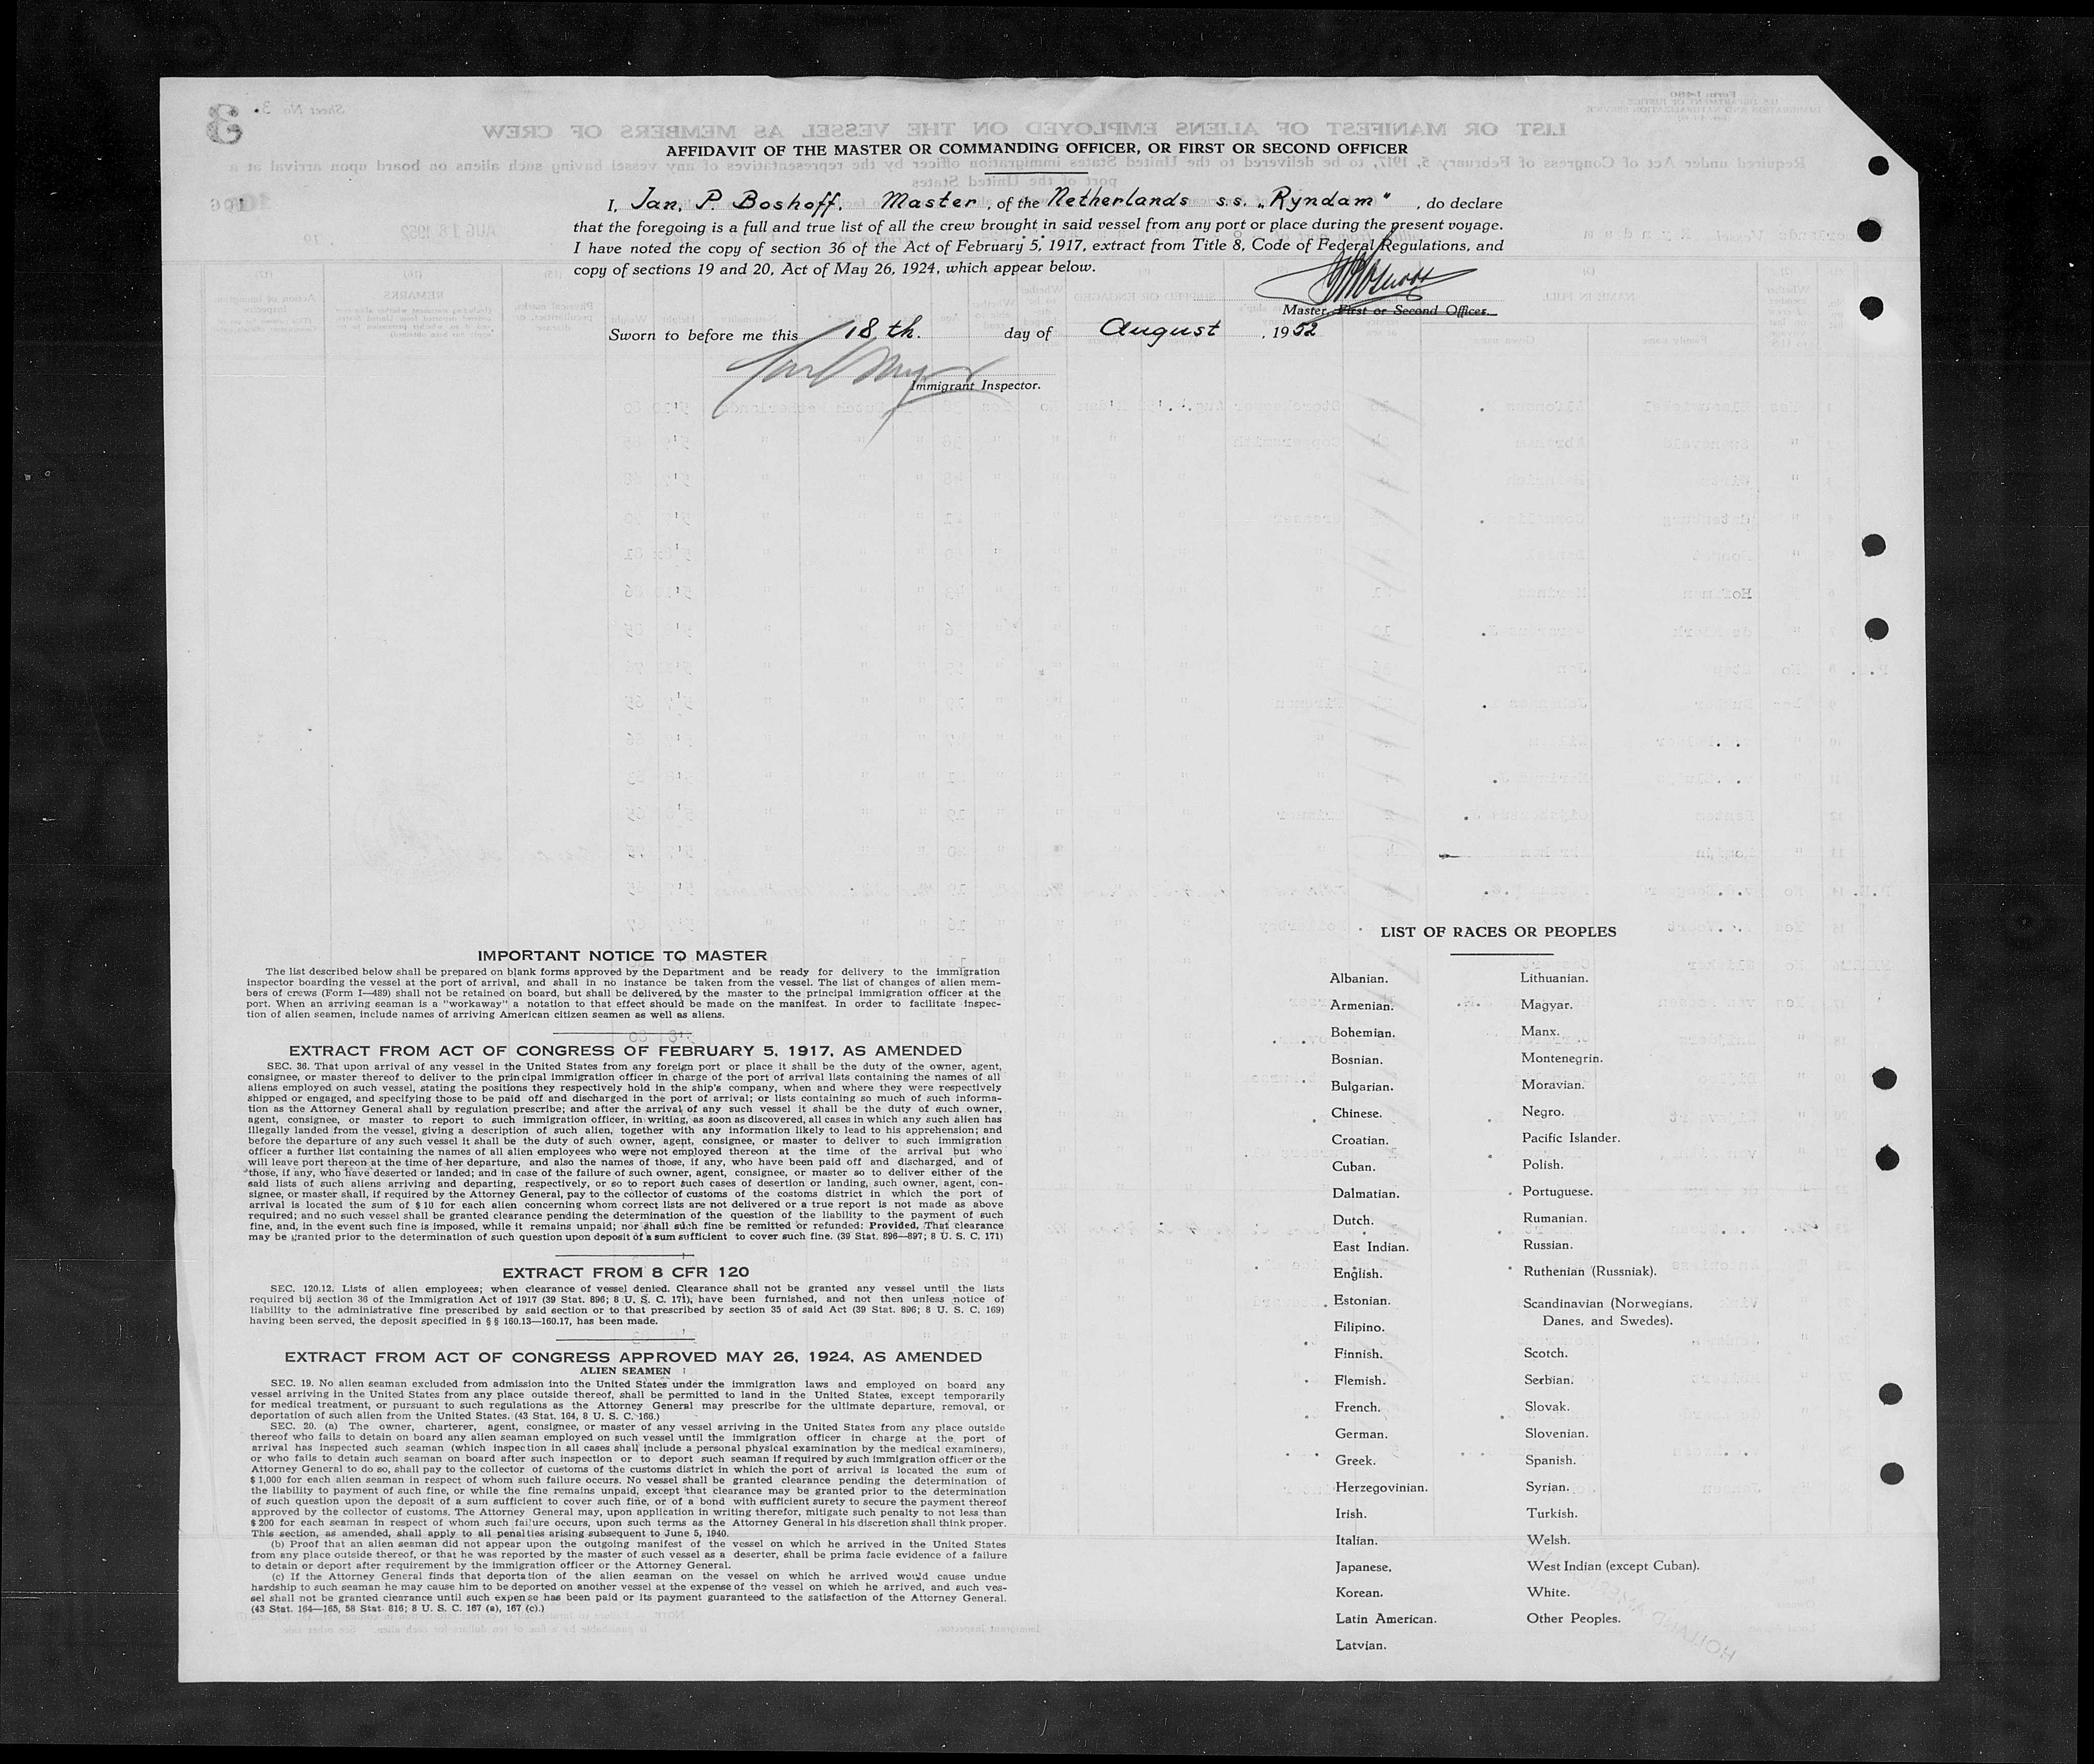 AFFIDAVIT OF THE MASTER OR COMMANDING OFFICER, OR FIRST OR SECOND OFFICER
I, Jan. P. Boshoff. Master, of the Netherlands s.s. „Ryndam", do declare
that the foregoing is a full and true list of all the crew brought in said vessel from any port or place during the present voyage.
I have noted the copy of section 36 of the Act of February 5, 1917, extract from Title 8, Code of Federal Regulations, and
copy of sections 19 and 20, Act of May 26, 1924, which appear below.
Master, First or Second Officer.
Sworn to before me this 18 th. day of August, 1952
Immigrant Inspector.
IMPORTANT NOTICE TO MASTER
The list described below shall be prepared on blank forms approved by the Department and be ready for delivery to the immigration
inspector boarding the vessel at the port of arrival, and shall in no instance be taken from the vessel. The list of changes of alien mem-
bers of crews (Form I—489) shall not be retained on board, but shall be delivered by the master to the principal immigration officer at the
port. When an arriving seaman is a "workaway" a notation to that effect should be made on the manifest. In order to facilitate inspec-
tion of alien seamen, include names of arriving American citizen seamen as well as aliens.
EXTRACT FROM ACT OF CONGRESS OF FEBRUARY 5, 1917, AS AMENDED
SEC. 36. That upon arrival of any vessel in the United States from any foreign port or place it shall be the duty of the owner, agent,
consignee, or master thereof to deliver to the principal immigration officer in charge of the port of arrival lists containing the names of all
aliens employed on such vessel, stating the positions they respectively hold in the ship's company, when and where they were respectively
shipped or engaged, and specifying those to be paid off and discharged in the port of arrival; or lists containing so much of such informa-
tion as the Attorney General shall by regulation prescribe; and after the arrival of any such vessel it shall be the duty of such owner,
agent, consignee, or master to report to such immigration officer, in writing, as soon as discovered, all cases in which any such alien has
illegally landed from the vessel, giving a description of such alien, together with any information likely to lead to his apprehension; and
before the departure of any such vessel it shall be the duty of such owner, agent, consignee, or master to deliver to such immigration
officer a further list containing the names of all alien employees who were not employed thereon at the time of the arrival but who
will leave port thereon at the time of her departure, and also the names of those, if any, who have been paid off and discharged, and of
those, if any, who have deserted or landed; and in case of the failure of such owner, agent, consignee, or master so to deliver either of the
said lists of such aliens arriving and departing, respectively, or so to report such cases of desertion or landing, such owner, agent, con-
signee, or master shall, if required by the Attorney General, pay to the collector of customs of the costoms district in which the port of
arrival is located the sum of $10 for each alien concerning whom correct lists are not delivered or a true report is not made as above
required; and no such vessel shall be granted clearance pending the determination of the question of the liability to the payment of such
fine, and, in the event such fine is imposed, while it remains unpaid; nor shall such fine be remitted or refunded: Provided, That clearance
may be granted prior to the determination of such question upon deposit of a sum sufficient to cover such fine. (39 Stat. 896—897; 8 U. S. C. 171)
EXTRACT FROM 8 CFR 120
SEC. 120.12. Lists of alien employees; when clearance of vessel denied. Clearance shall not be granted any vessel until the lists
required bij section 36 of the Immigration Act of 1917 (39 Stat. 896; 8 U. S. C. 171), have been furnished, and not then unless notice of
liability to the administrative fine prescribed by said section or to that prescribed by section 35 of said Act (39 Stat. 896; 8 U. S. C. 169)
having been served, the deposit specified in §§ 160.13—160.17, has been made.
EXTRACT FROM ACT OF CONGRESS APPROVED MAY 26, 1924, AS AMENDED
ALIEN SEAMEN
SEC. 19. No alien seaman excluded from admission into the United States under the immigration laws and employed on board any
vessel arriving in the United States from any place outside thereof, shall be permitted to land in the United States, except temporarily
for medical treatment, or pursuant to such regulations as the Attorney General may prescribe for the ultimate departure, removal, or
deportation of such alien from the United States. (43 Stat. 164, 8 U. S. C. 166.)
SEC. 20. (a) The owner, charterer, agent, consignee, or master of any vessel arriving in the United States from any place outside
thereof who fails to detain on board any alien seaman employed on such vessel until the immigration officer in charge at the port of
arrival has inspected such seaman (which inspection in all cases shall include a personal physical examination by the medical examiners),
or who fails to detain such seaman on board after such inspection or to deport such seaman if required by such immigration officer or the
Attorney General to do so, shall pay to the collector of customs of the customs district in which the port of arrival is located the sum of
$1,000 for each alien seaman in respect of whom such failure occurs. No vessel shall be granted clearance pending the determination of
the liability to payment of such fine, or while the fine remains unpaid, except that clearance may be granted prior to the determination
of such question upon the deposit of a sum sufficient to cover such fine, or of a bond with sufficient surety to secure the payment thereof
approved by the collector of customs. The Attorney General may, upon application in writing therefor, mitigate such penalty to not less than
$200 for each seaman in respect of whom such failure occurs, upon such terms as the Attorney General in his discretion shall think proper.
This section, as amended, shall apply to all penalties arising subsequent to June 5, 1940.
(b) Proof that an alien seaman did not appear upon the outgoing manifest of the vessel on which he arrived in the United States
from any place outside thereof, or that he was reported by the master of such vessel as a deserter, shall be prima facie evidence of a failure
to detain or deport after requirement by the immigration officer or the Attorney General.
(c) If the Attorney General finds that deportation of the alien seaman on the vessel on which he arrived would cause undue
hardship to such seaman he may cause him to be deported on another vessel at the expense of the vessel on which he arrived, and such ves-
sel shall not be granted clearance until such expense has been paid or its payment guaranteed to the satisfaction of the Attorney General.
(43 Stat. 164—165, 58 Stat. 816; 8 U. S. C. 167 (a), 167 (c).)
LIST OF RACES OR PEOPLES
Albanian.
Armenian.
Bohemian.
Bosnian.
Bulgarian.
Chinese.
Croatian.
Cuban.
Dalmatian.
Dutch.
East Indian.
English.
Estonian.
Filipino.
Finnish.
Flemish.
French.
German.
Greek.
Herzegovinian.
Irish.
Italian.
Japanese.
Korean.
Latin American.
Latvian.
Lithuanian.
Magyar.
Manx.
Montenegrin.
Moravian.
Negro.
Pacific Islander.
Polish.
Portuguese.
Rumanian.
Russian.
Ruthenian (Russniak).
Scandinavian (Norwegians,
Danes, and Swedes).
Scotch.
Serbian.
Slovak.
Slovenian.
Spanish.
Syrian.
Turkish.
Welsh.
West Indian (except Cuban).
White.
Other Peoples.